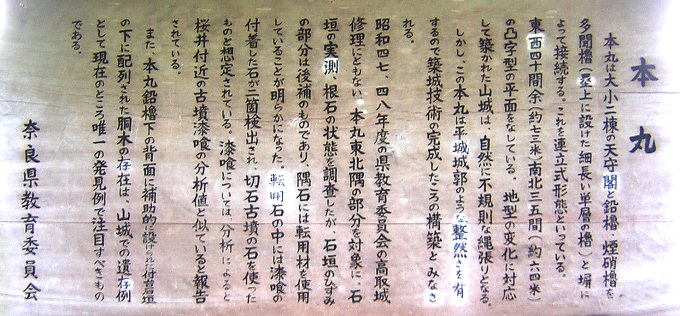 本丸
本丸は大小二棟の天守閣と鉛櫓、煙硝櫓を
多聞櫓(塁上に設けた細長い単層の櫓)と塀に
よって接続する。これを連立式形態といっている。
東西四十間余(約七三米)南北三五間(約六四米)
の凸字型の平面をなしている。地型の変化に対応
して築かれた山城は、自然に不規則な縄張りとなる。
しかし、この本丸は平城城郭のような整然さを有
するので築城技術の完成したころの構築とみなさ
れる。
昭和四七、四八年度の県教育委員会の高取城
修理にともない、本丸東北隅の部分を対象に、石
垣の実測、根石の状態を調査したが、石垣のひずみ
の部分は後補のものであり、隅石には転用材を使用
していることが明らかになった。転用石の中には漆喰の
付着した石が二箇検出され、切石古墳の石を使った
ものと想定されている。漆喰については、分析によると
桜井付近の古墳漆喰の分析値と似ていると報告
されている。
また、本丸鉛櫓下の背面に補助的に設けられた付石垣
の下に配列された胴木の存在は、山城での遺存例
として現在のところ唯一の発見例で注目すべきもの
である。
奈良県教育委員会